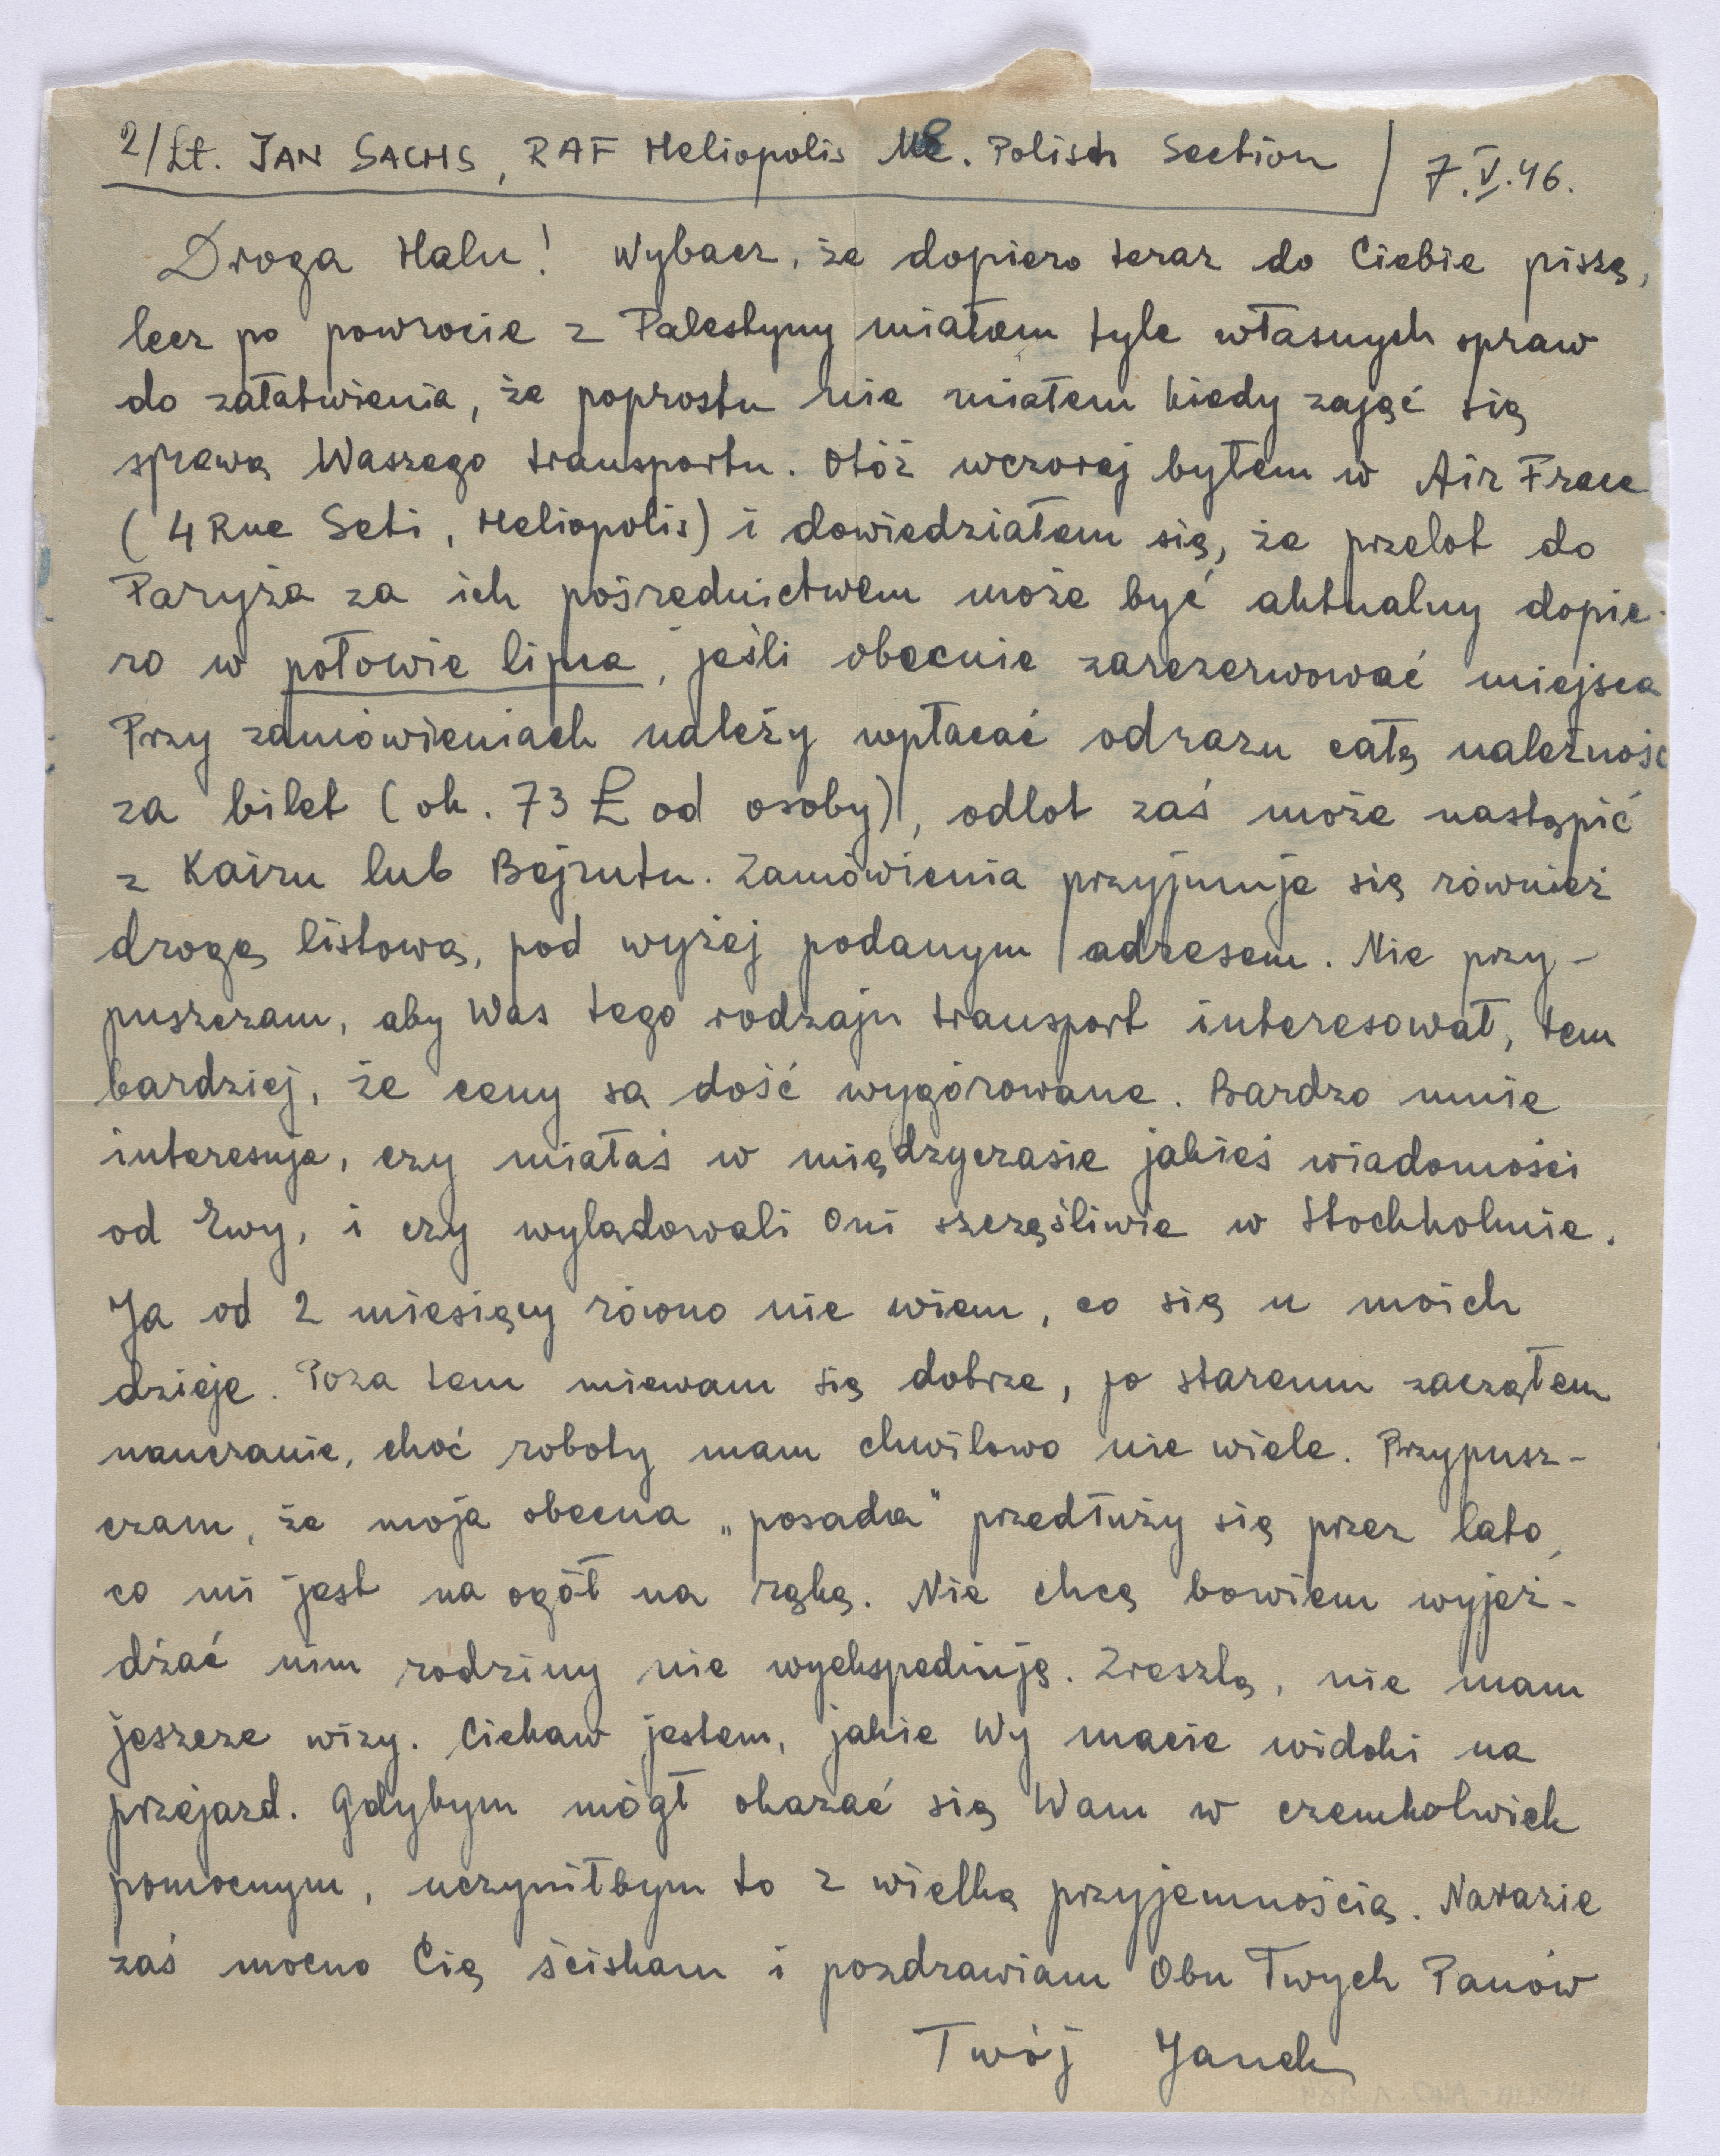 2/Lt. JAN SACHS, RAF Heliopolis ME. Polish Section 7.V.46.
Droga Halu! Wybacz, że dopiero teraz do Ciebie piszę,
lecz po powrocie z Palestyny miałem tyle własnych spraw
do załatwienia, że poprostu nie miałem kiedy zająć się
sprawą Waszego transportu. Otóż wczoraj byłem w Air France
(4 Rue Seti, Heliopolis) i dowiedziałem się, że przelot do
Paryża za ich pośrednictwem może być aktualny dopie-
ro w połowie lipca, jeśli obecnie zarezerwować miejsca
Przy zamówieniach należy wpłacać odrazu całą należność
za bilet (ok. 73 £ od osoby), odlot zaś może nastąpić
z Kairu lub Bejrutu. Zamówienia przyjmuje się również
drogą listową, pod wyżej podanym adresem. Nie przy-
puszczam, aby Was tego rodzaju transport interesował, tem
bardziej, że ceny są dość wygórowane. Bardzo mnie
interesuje, czy miałaś w międzyczasie jakieś wiadomości
od Ewy, i czy wylądowali Oni szczęśliwie w Stockholmie.
Ja od 2 miesięcy równo nie wiem, co się u moich
dzieje. Poza tem miewam się dobrze, po staremu zacząłem
nauczanie, choć roboty mam chwilowo nie wiele. Przypusz-
czam, że moja obecna „posada" przedłuży się przez lato,
co mi jest na ogół na rękę. Nie chcę bowiem wyjeż-
dżać nim rodziny nie wyekspediuję. Zresztą, nie mam
jeszcze wizy. Ciekaw jestem, jakie Wy macie widoki na
przejazd. Gdybym mógł okazać się Wam w czemkolwiek
pomocnym, uczyniłbym to z wielką przyjemnością. Narazie
zaś mocno Cię ściskam i pozdrawiam Obu Twych Panów
Twój Janek